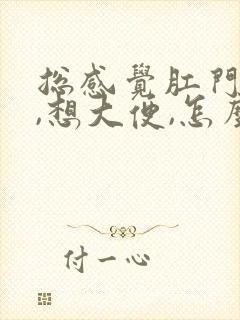 總感覺肛門
,想大便,怎麼
付一心